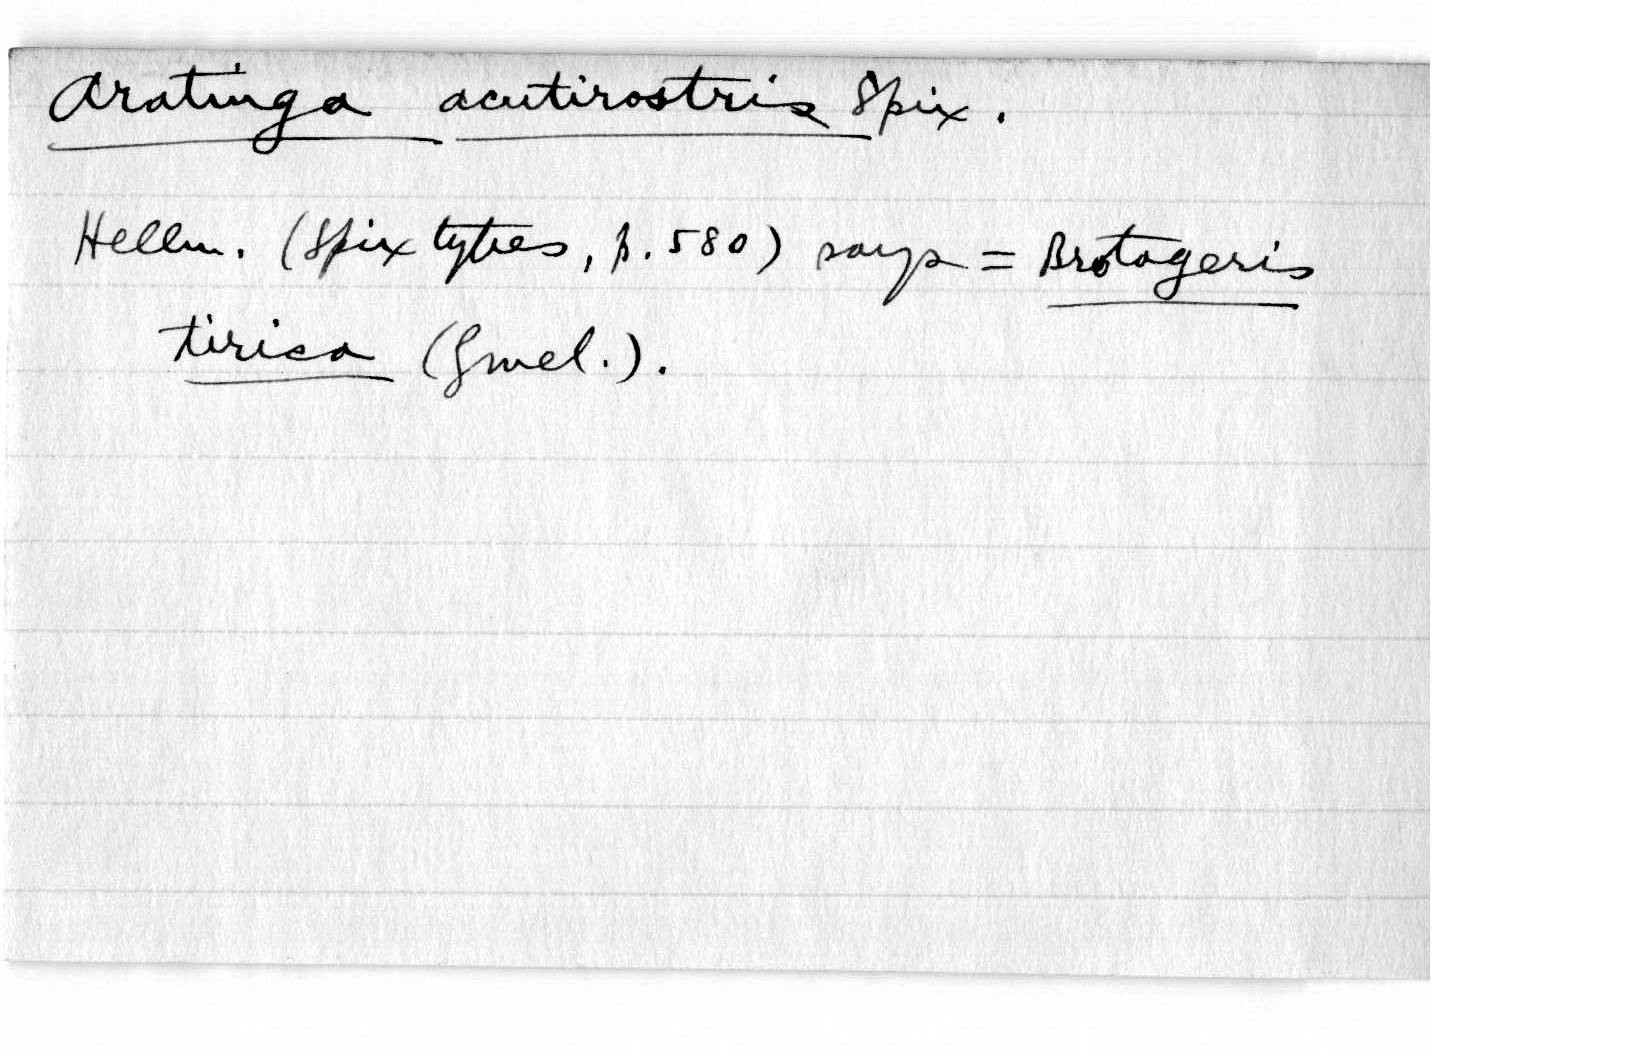 Aratinga acutirostris Spix.
Hellm. (Spix types, p. 580) says = Brotogeris
tirica (Gmel.).